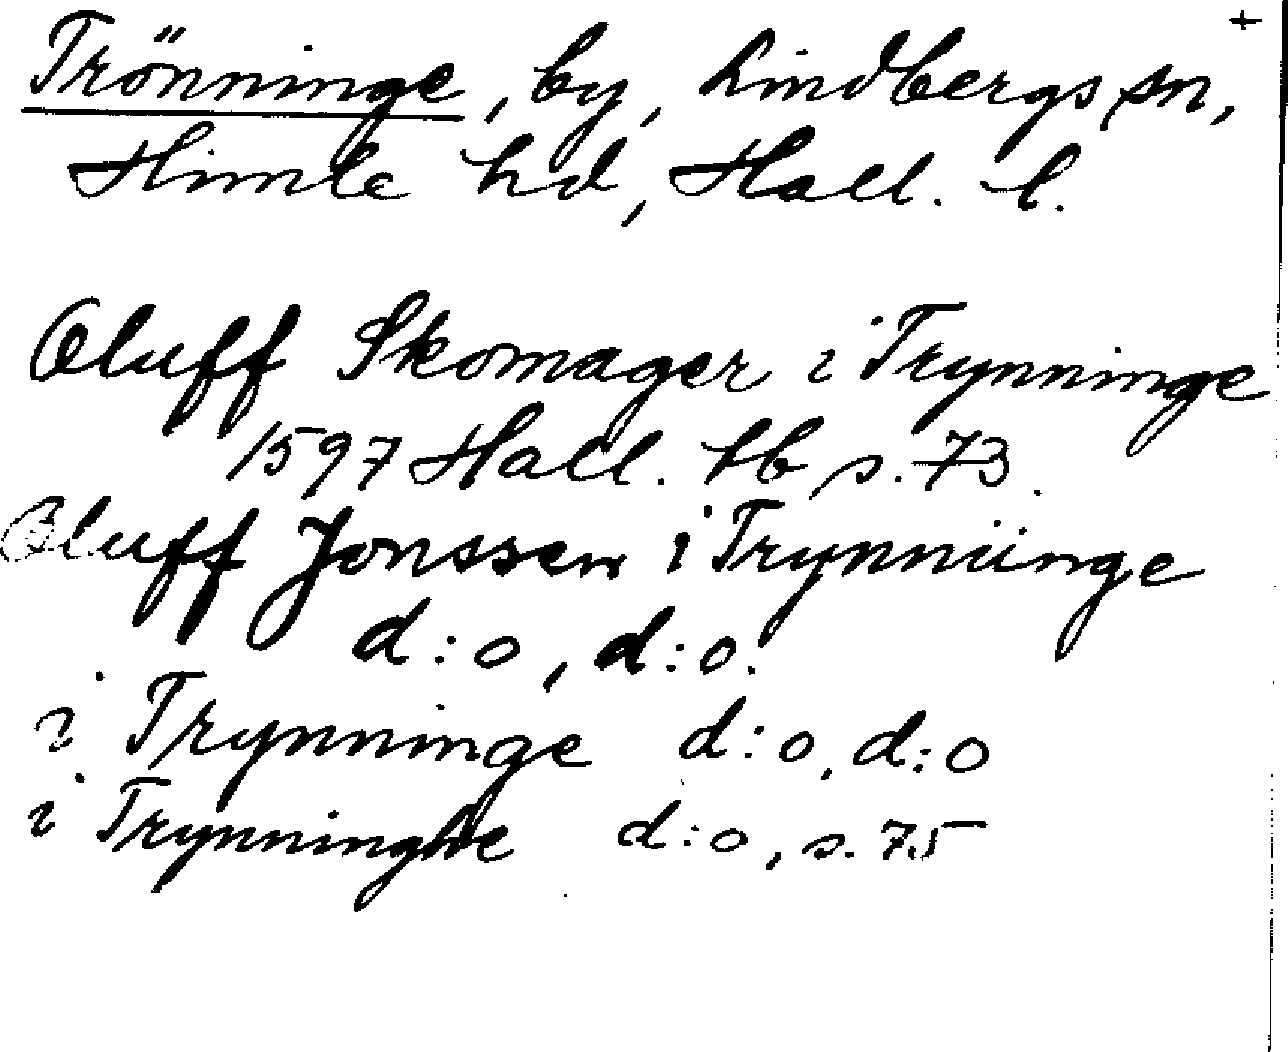 +
Trönninge, by, Lindbergs sn,
Himle hd, Hall. l.
Oluff Skomager i Trynninge
1597 Hall. lb s. 73.
Oluff Jonssen i Trynnunge
d:o, d:o.
i Trynninge d:o, d:o
i Trynninghe d:o, s. 75